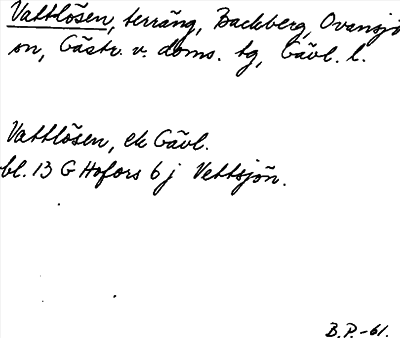 Vattlösen, terräng, Backberg, Ovansjö
sn, Gästr. v. doms. tg, Gävl. l.
Vattlösen, ek Gävl.
bl. 13 G Hofors 6 j Vettsjön.
B.P.-61.